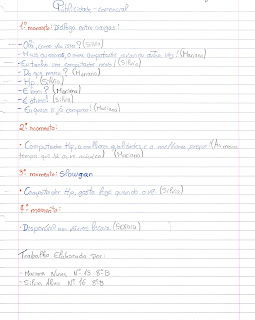 Publicidade - comercial
1º momento: Diálogo entre amigas:
- Olá, como vais? (Silvia)
- (Mariana)
- Eu tenho um computador novo! (Silvia)
- De que marca? (Mariana)
- Hp. (Silvia)
- É bom? (Mariana)
- É ótimo! (Silvia)
- Eu quero ir já comprar! (Mariana)
2º momento:
• Computador Hp, a melhor qualidade e a melhor (Ao mesmo
tempo que se ouve música) (Mariana)
3º momento: Slowgan
• Computador Hp, gosta logo quando o vê. (Silvia)
4º momento:
• Disponível em (Silvia)
Trabalho Elaborado por:
- Mariana Nunes Nº 13 8ºB
- Silvia Alves Nº 16 8ºB